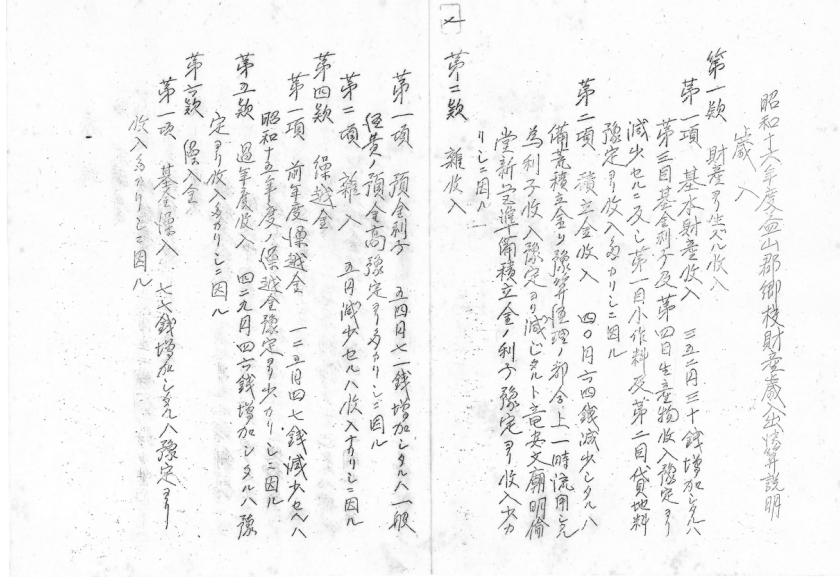 昭和十六年度益山郡鄉校財產歲入出決算説明
歲入
第一款 財產ヨリ生ズル收入
第一項 基本財產收入 三五二円三十錢增加シタルハ
第三目基金利子及第四目生產物收入豫定ヨリ
減少セルニ反シ第一目小作料及第二目貸地料
豫定ヨリ收入多カリシニ因ル
第二項 積立金收入 四〇円六四錢減少シタルハ
備荒積立金ヲ豫算經理ノ都合上一時流用シタル
為利子收入豫定ヨリ減ジタルト竜安文廟明倫
堂新立準備積立金ノ利子豫定ヨリ收入少カ
リシニ因ル
第二款 雜收入
第一項 預金利子 五四円七二錢增加シタルハ一般
經費ノ預金高豫定ヨリ多カリシニ因ル
第二項 雜入 五円減少セルハ收入ナカリシニ因ル
第四款 繰越金
第一項 前年度繰越金 一二五円四七錢減少セルハ
昭和十五年度ノ繰越金豫定ヨリ少カリシニ因ル
第五款 過年度收入 四二九円四六錢增加シタルハ豫
定ヨリ收入多カリシニ因ル
第六款 繰入金
第一項 基金繰入 七七錢增加シタルハ豫定ヨリ
收入多カリシニ因ル